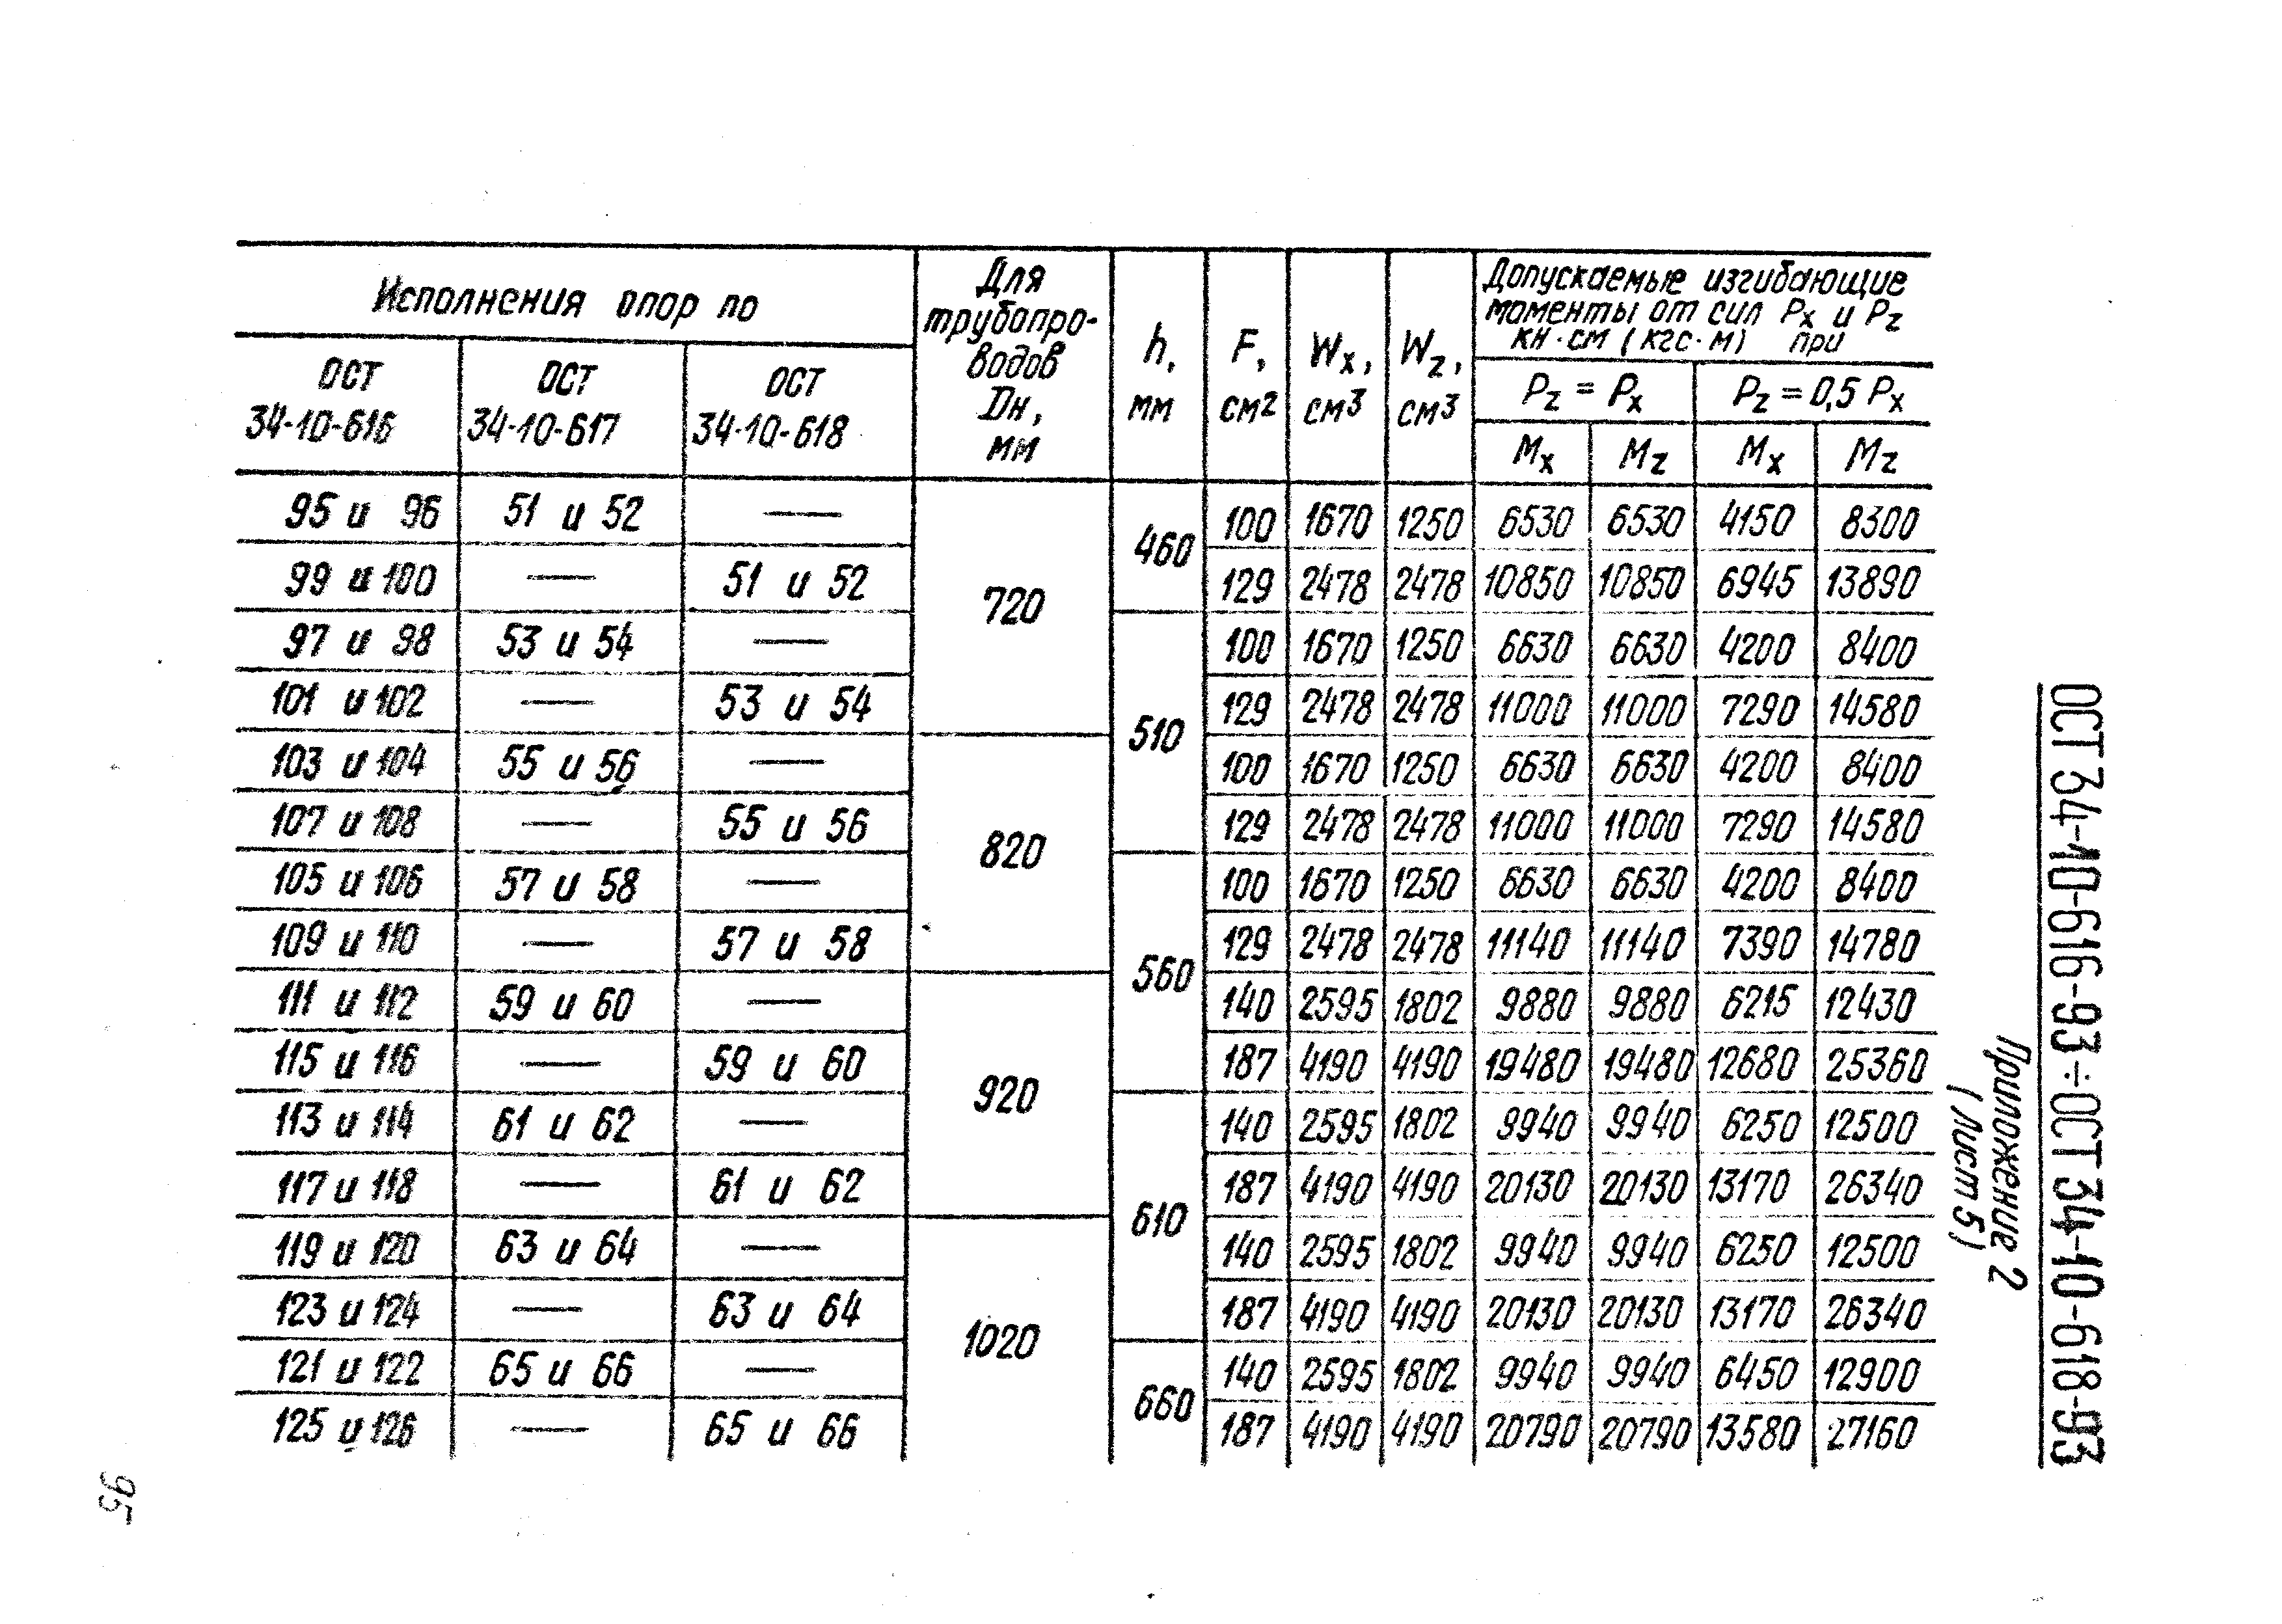 Исполнения опор по
Для трубопро-водов Dн, мм
h, мм
F, см²
Wx, см³
Wz, см³
Допускаемые изгибающие
моменты от сил Px и Pz
кн·см (кгс·м) при
ОСТ 34-10-616
ОСТ 34-10-617
ОСТ 34-10-618
Pz = Px
Pz = 0,5 Px
Mx Mz Mx Mz
95 и 96 51 и 52 — 720 460 100 1670 1250 6530 6530 4150 8300
99 и 100 — 51 и 52 129 2478 2478 10850 10850 6945 13890
97 и 98 53 и 54 — 510 100 1670 1250 6630 6630 4200 8400
101 и 102 — 53 и 54 129 2478 2478 11000 11000 7290 14580
103 и 104 55 и 56 — 820 100 1670 1250 6630 6630 4200 8400
107 и 108 — 55 и 56 129 2478 2478 11000 11000 7290 14580
105 и 106 57 и 58 — 560 100 1670 1250 6630 6630 4200 8400
109 и 110 — 57 и 58 129 2478 2478 11140 11140 7390 14780
111 и 112 59 и 60 — 920 140 2595 1802 9880 9880 6215 12430
115 и 116 — 59 и 60 187 4190 4190 19480 19480 12680 25360
113 и 114 61 и 62 — 610 140 2595 1802 9940 9940 6250 12500
117 и 118 — 61 и 62 187 4190 4190 20130 20130 13170 26340
119 и 120 63 и 64 — 1020 140 2595 1802 9940 9940 6250 12500
123 и 124 — 63 и 64 187 4190 4190 20130 20130 13170 26340
121 и 122 65 и 66 — 660 140 2595 1802 9940 9940 6450 12900
125 и 126 — 65 и 66 187 4190 4190 20790 20790 13580 27160
ОСТ 34-10-616-93÷ОСТ 34-10-618-93
Приложение 2
(Лист 5)
95